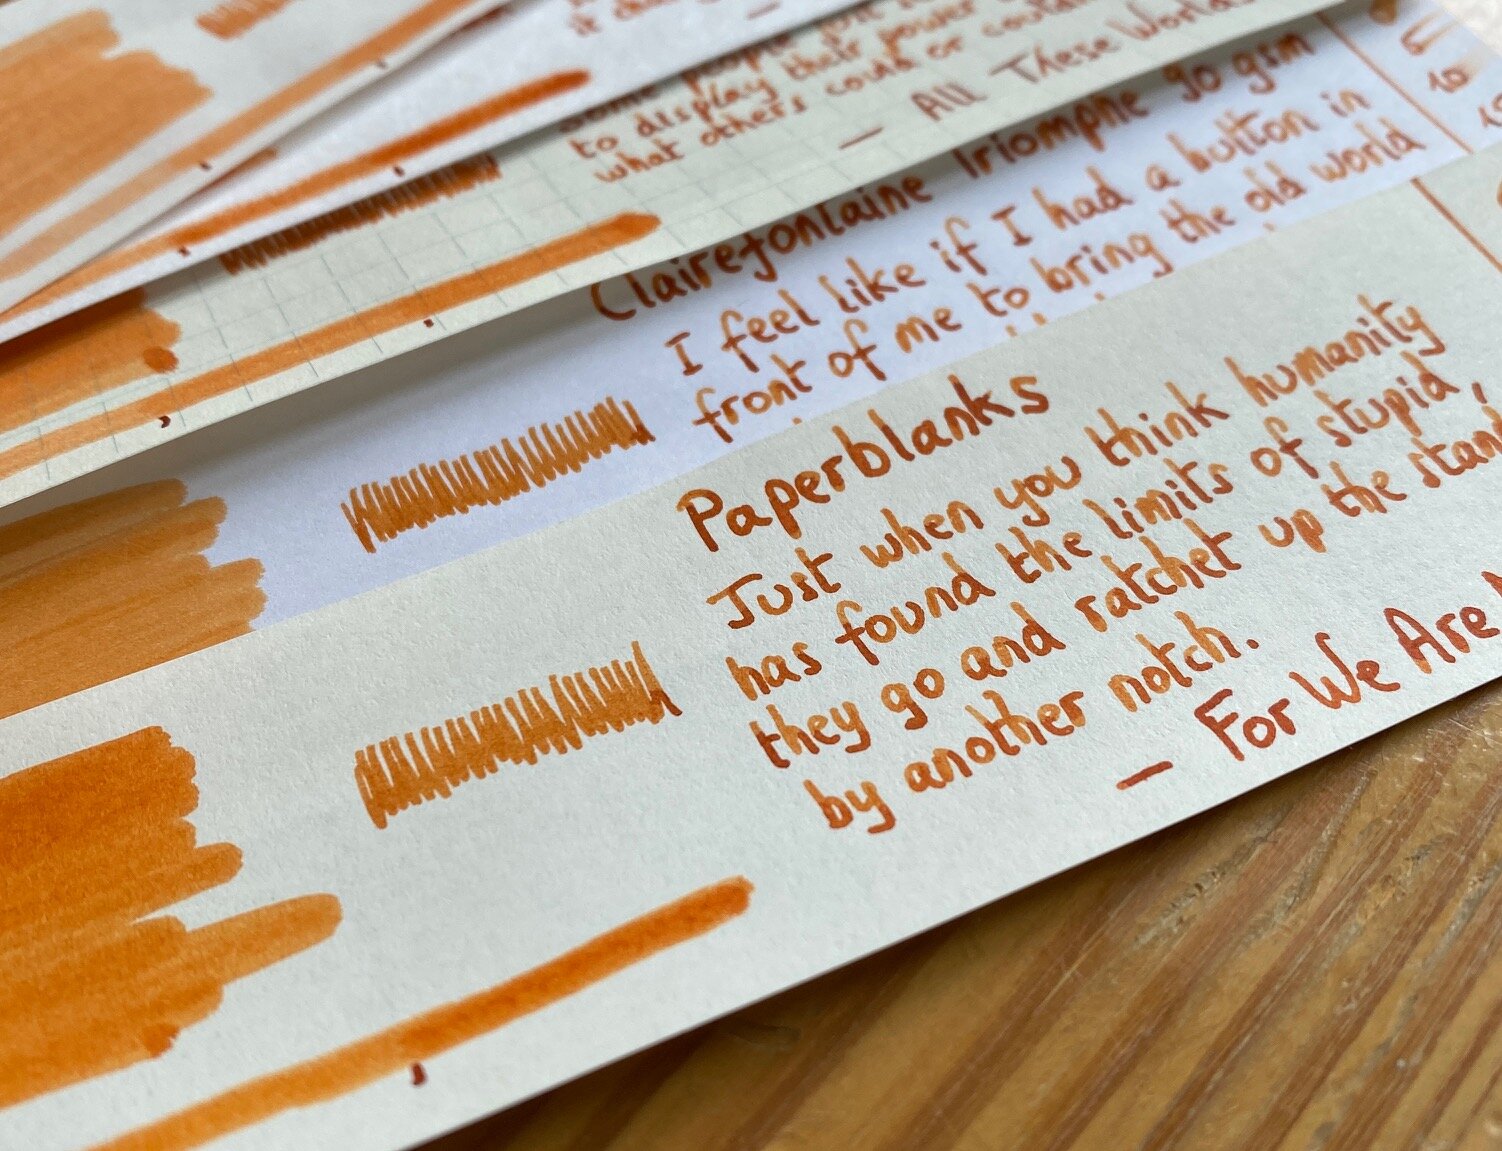 it
some people
to display their power
what others could or could
— All These Worlds
Clairefontaine Triomphe 90 gsm
I feel like if I had a button in
front of me to bring the old world
10
Paperblanks
Just when you think humanity
has found the limits of stupid,
they go and ratchet up the stand
by another notch.
— For We Are